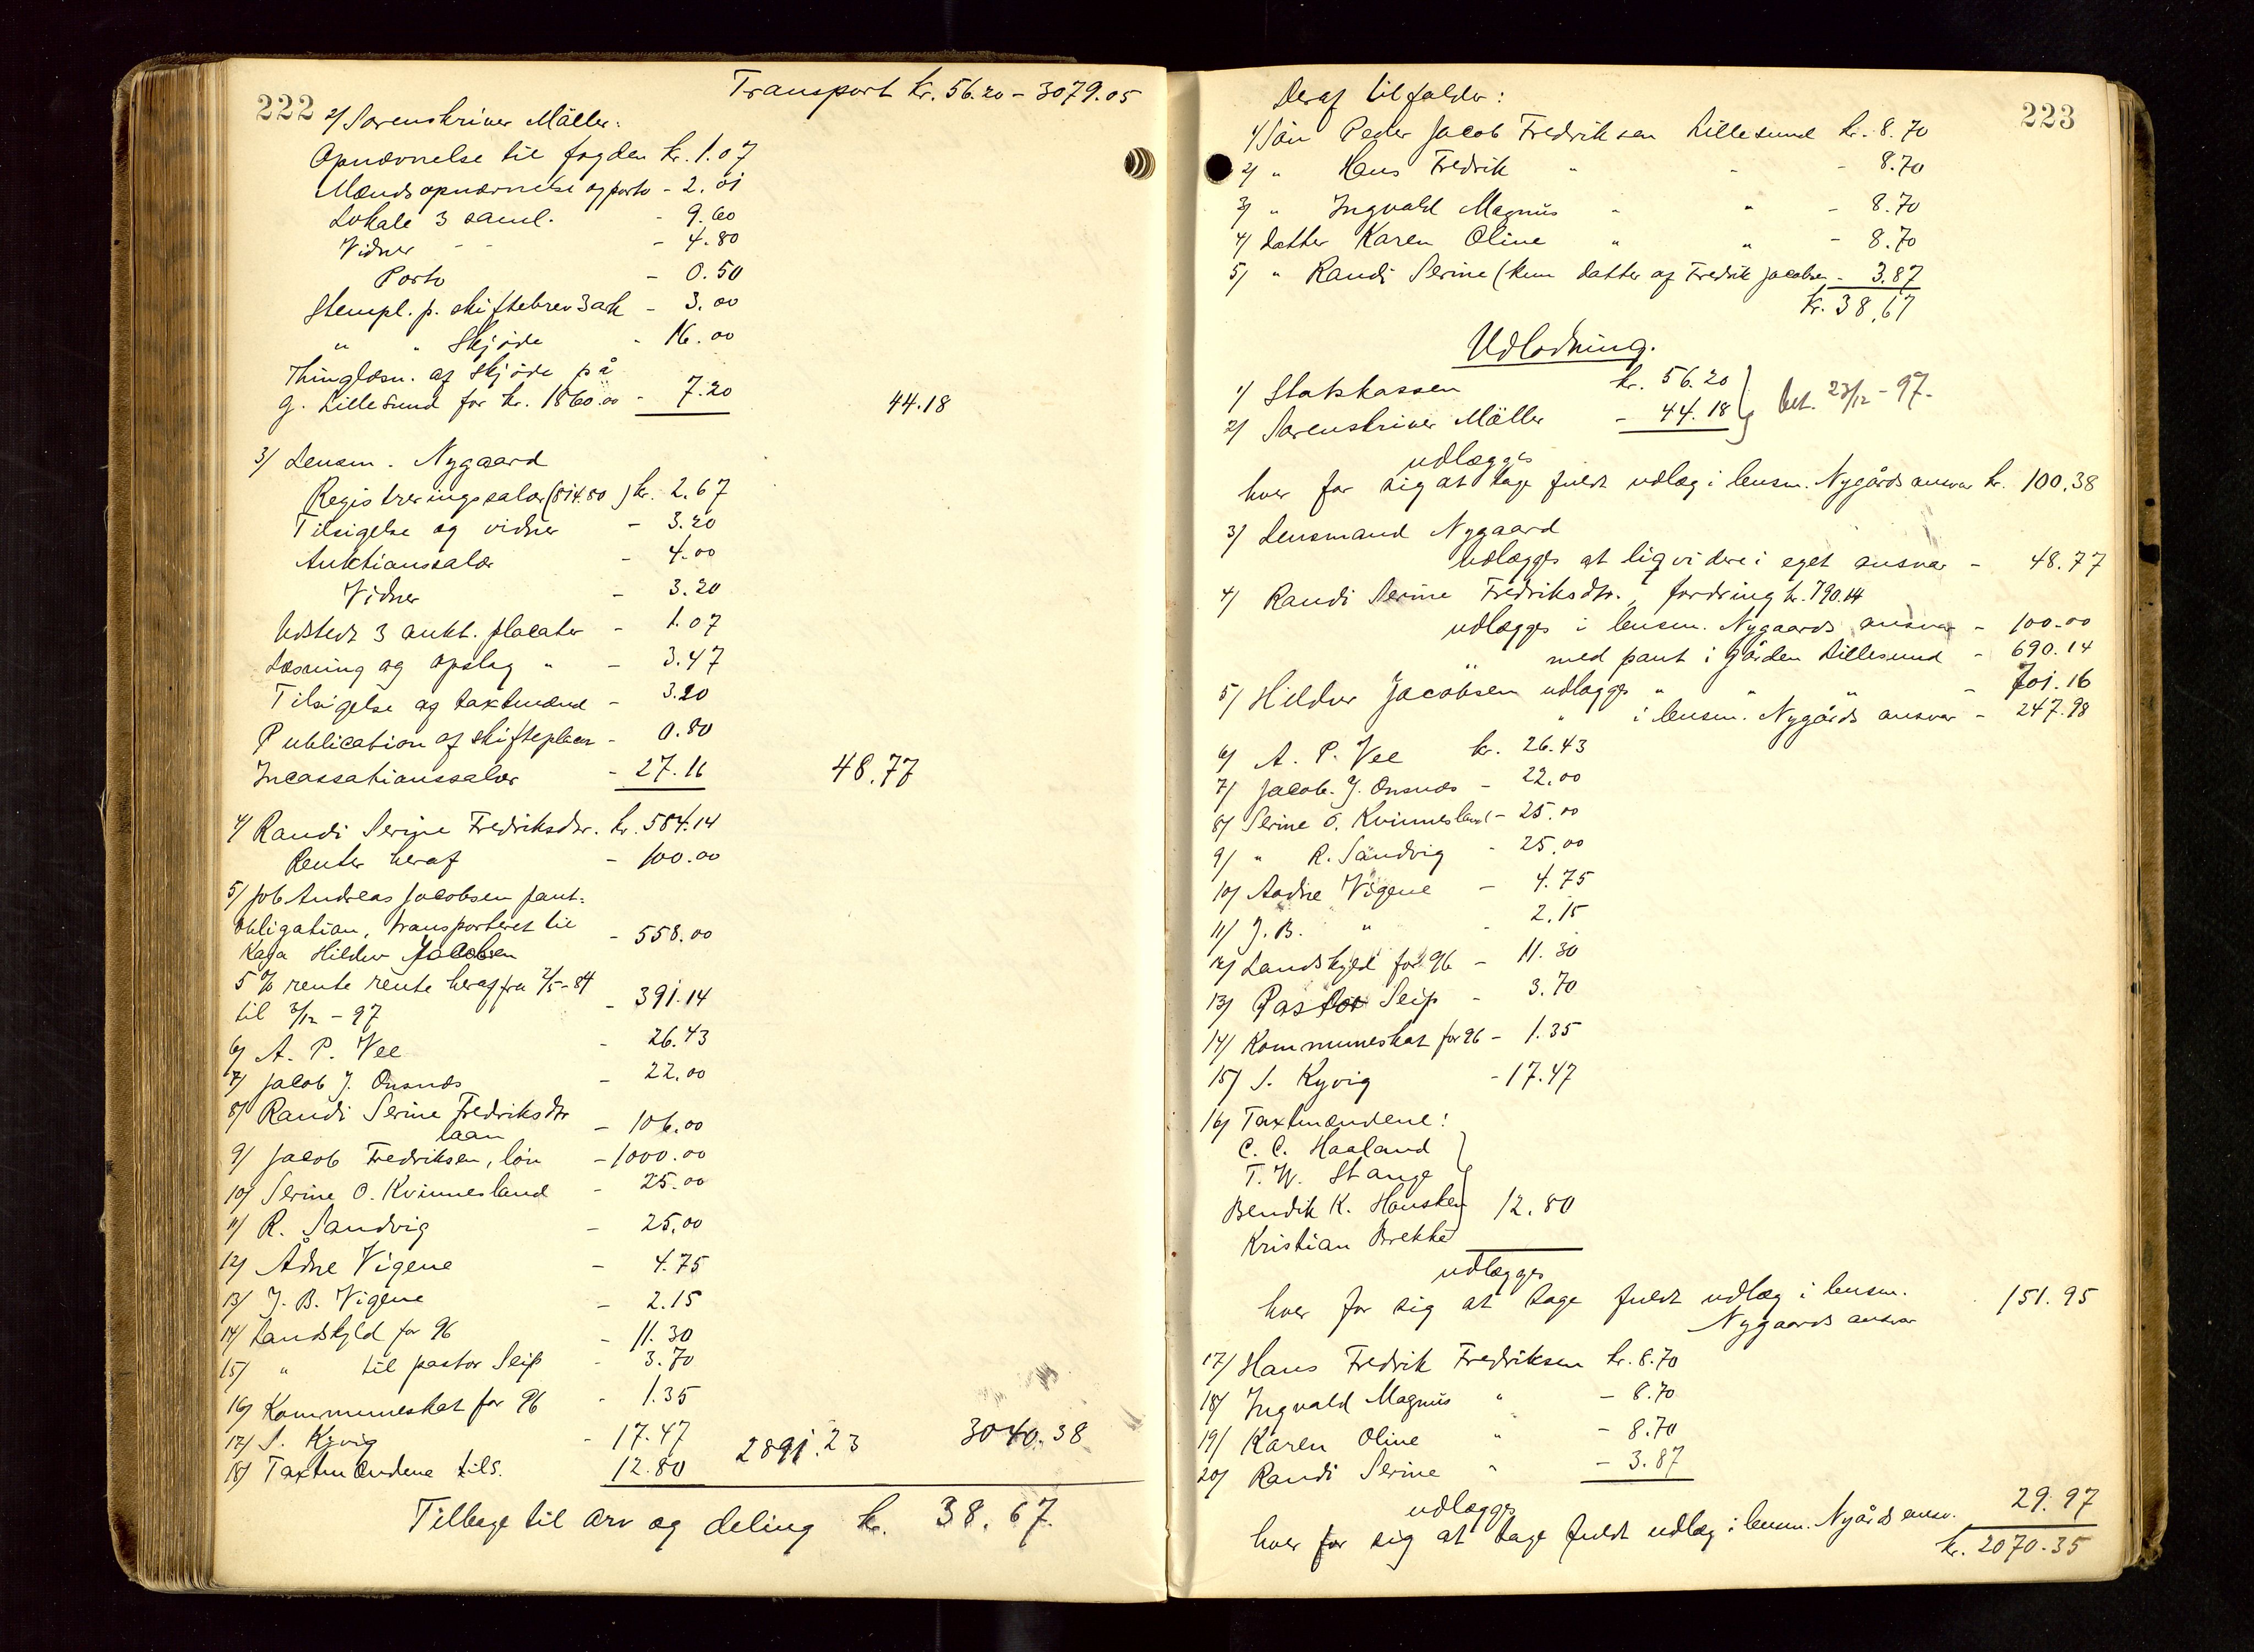 222
Transport kr. 56.20 - 3079.05
2/ Sorenskriver Möller:
Opnævnelse til fogden kr. 1.07
Mændsopnævnelse og porto - 2.01
Lokale 3 saml. - 9.60
Vidner - - - 4.80
Porto - 0.50
Stempl. p. skiftebrev 3 ark - 3.00
" " Skjöde - 16.00
Thinglæsn. af Skjöde på
g. Lillesund for kr. 1860.00 - 7.20 44.18
3/ Lensm. Nygaard
Registreringssalær (814.80) kr. 2.67
Tilsigelse og vidner - 3.20
Auktionssalær - 4.00
Vidner - 3.20
Udstedt 3 aukt. placater - 1.07
Læsning og opslag " - 3.47
Tilsigelse og taxtmænd - 3.20
Publication af skifteplacr - 0.80
Incassationssalær - 27.16 48.77
4/ Randi Serine Fredriksdtr. kr. 584.14
Renter heraf - 100.00
5/ Job Andreas Jacobsen pant-
obligation, transporteret til
Kaja Hildur Jacobsen - 558.00
5 % rente rente heraf fra 2/5-84
til 3/12 - 97 - 391.14
6/ A. P. Vee - 26.43
7/ Jacob J. Onsnæs - 22.00
8/ Randi Serine Fredriksdtr
laan - 106.00
9/ Jacob Fredriksen, lön - 1000.00
10/ Serine O. Kvinnesland - 25.00
11/ R. Sandvig - 25.00
12/ Ådne Vigene - 4.75
13/ J. B. Vigene - 2.15
14/ Landskyld for 96 - 11.30
15/ " til pastor Seip - 3.70
16/ Kommuneskat for 96 - 1.35
17/ S. Kyvig - 17.47 2891.23 3040.38
18/ Taxtmændene tils. 12.80
Tilbage til arv og deling kr. 38.67
223
Deraf tilfalder:
1/ Sön Peder Jacob Fredriksen Lillesund kr. 8.70
2/ " Hans Fredrik " - - 8.70
3/ " Ingvald Magnus " " - 8.70
4/ Datter Karen Oline " " - 8.70
5/ " Randi Serine (kun datter af Fredrik Jacobsen - 3.87
kr. 38,67
Udlodning.
1/ Statskassen kr. 56.20
2/ Sorenskriver Möller - 44.18 } bet. 23/12 - 97.
udlægges
hver for sig at tage fuldt udlæg i lensm. Nygårds ansvar kr. 100.38
3/ Lensmand Nygaard
udlægges at liqvidere i eget ansvar - 48.77
4/ Randi Serine Fredriksdtr., fordring kr. 790.14
udlægges i lensm. Nygaards ansvar - 100.00
" med pant i gården Lillesund - 690.14
5/ Hildur Jacobsen udlægges " " " - 701.16
" i lensm. Nygårds ansvar - 247.98
6/ A. P. Vee kr. 26.43
7/ Jacob J. Onsnæs - 22.00
8/ Serine O. Kvinnesland - 25.00
9/ " R. Sandvig - 25.00
10/ Aadne Vigene - 4.75
11/ J. B. " - 2.15
12/ Landskyld for 96 - 11.30
13/ Pastor Seip - 3.70
14/ Kommuneskat for 96 - 1.35
15/ S. Kyvig - 17.47
16/ Taxtmændene:
C. C. Haaland
T. W. Stange
Bendik K. Hausken 12.80
Kristian Brekke
udlægges
hver for sig at tage fuldt udlæg i lensm. 151.95
Nygaards ansvar
17/ Hans Fredrik Fredriksen kr. 8.70
18/ Ingvald Magnus " - 8.70
19/ Karen Oline " - 8.70
20/ Randi Serine " - 3.87
udlægges
hver for sig at tage fuldt udlæg i lensm. Nygårds ansv. 29.97
kr. 2070.35